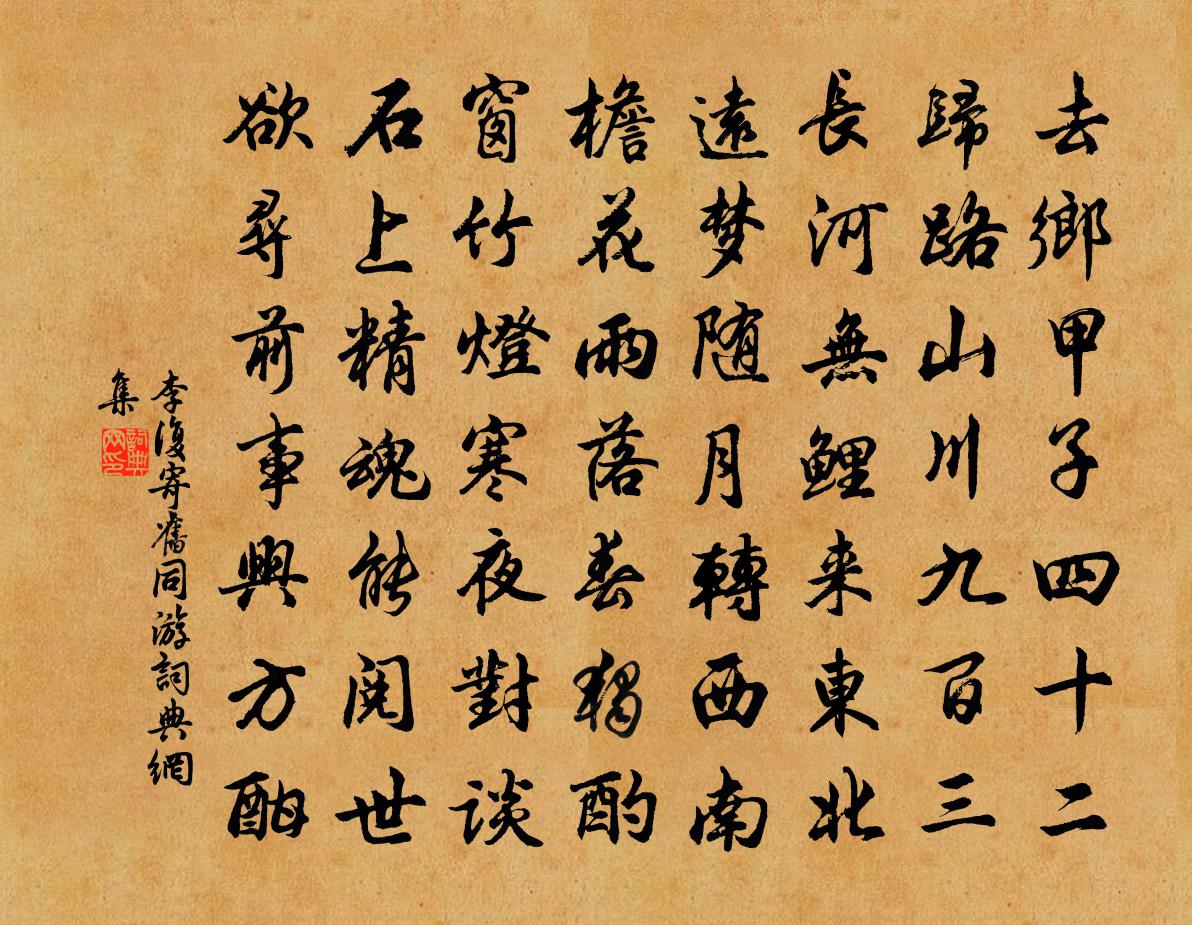 去鄉甲子四十二
歸路山川九百三
長河無鯉来東北
遠梦随月轉西南
檐花雨落春獨酌
窗竹燈寒夜對談
石上精魂能閱世
欲尋前事興方酣
李復寄舊同游詞典網
集
詞典
网印